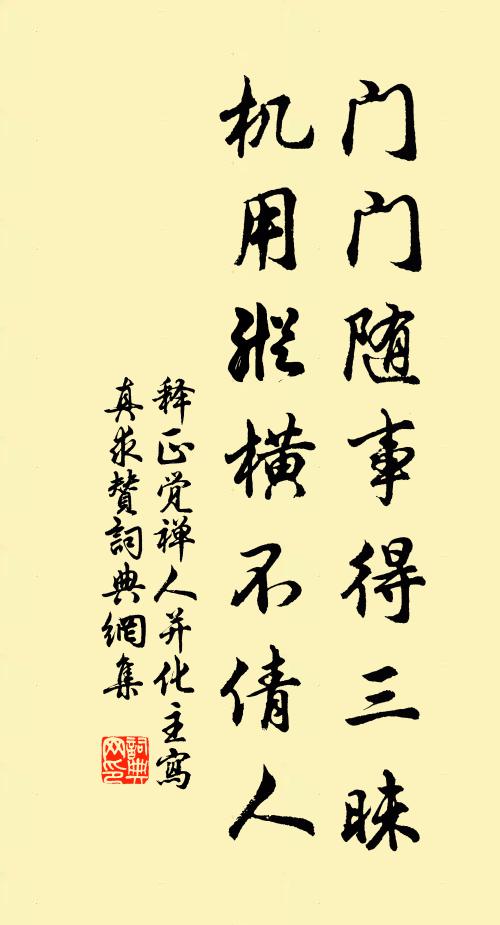 门门随事得三昧
机用纵横不倩人
释正觉禅人并化主写
真求赞词典網集
詞典
网印